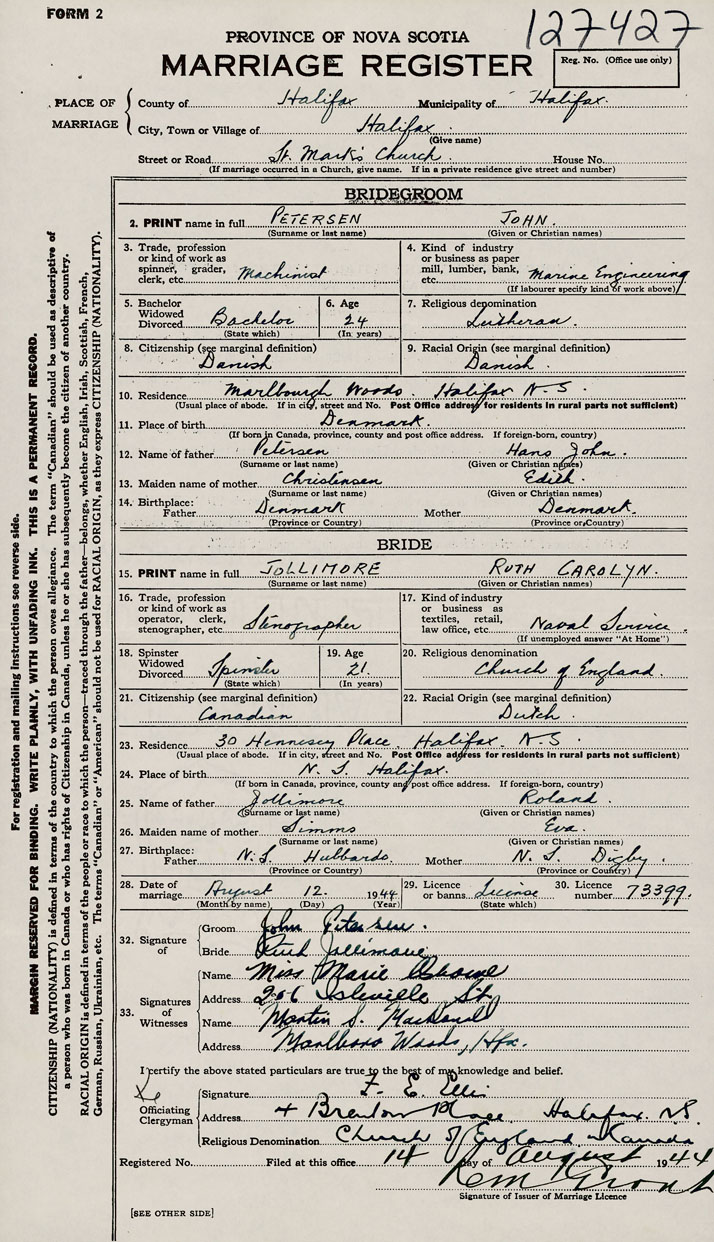 FORM 2
127427
PROVINCE OF NOVA SCOTIA
MARRIAGE REGISTER
Reg. No. (Office use only)
PLACE OF MARRIAGE
County of Halifax Municipality of Halifax.
City, Town or Village of Halifax.
(Give name)
Street or Road St. Mark's Church. House No.
(If marriage occurred in a Church, give name. If in a private residence give street and number)
BRIDEGROOM
2. PRINT name in full PETERSEN JOHN.
(Surname or last name) (Given or Christian names)
3. Trade, profession or kind of work as spinner, grader, clerk, etc. Machinist
4. Kind of industry or business as paper mill, lumber, bank, etc. Marine Engineering
(If labourer specify kind of work above)
5. Bachelor Widowed Divorced Bachelor
(State which)
6. Age 24
(In years)
7. Religious denomination
Lutheran.
8. Citizenship (see marginal definition)
Danish
9. Racial Origin (see marginal definition)
Danish.
10. Residence Marlbourgh Woods. Halifax N.S.
(Usual place of abode. If in city, street and No. Post Office address for residents in rural parts not sufficient)
11. Place of birth Denmark.
(If born in Canada, province, county and post office address. If foreign-born, country)
12. Name of father Petersen Hans John.
(Surname or last name) (Given or Christian names)
13. Maiden name of mother Christensen Edith.
(Surname or last name) (Given or Christian names)
14. Birthplace: Father Denmark Mother Denmark.
(Province or Country) (Province or Country)
BRIDE
15. PRINT name in full JOLLIMORE RUTH CAROLYN.
(Surname or last name) (Given or Christian names)
16. Trade, profession or kind of work as operator, clerk, stenographer, etc. Stenographer
17. Kind of industry or business as textiles, retail, law office, etc. Naval Service.
(If unemployed answer "At Home")
18. Spinster Widowed Divorced Spinster
(State which)
19. Age 21.
(In years)
20. Religious denomination
Church of England.
21. Citizenship (see marginal definition)
Canadian
22. Racial Origin (see marginal definition)
Dutch.
23. Residence 30 Hennesey Place, Halifax N.S.
(Usual place of abode. If in city, street and No. Post Office address for residents in rural parts not sufficient)
24. Place of birth N.S. Halifax.
(If born in Canada, province, county and post office address. If foreign-born, country)
25. Name of father Jollimore Roland.
(Surname or last name) (Given or Christian names)
26. Maiden name of mother Simms Eva.
(Surname or last name) (Given or Christian names)
27. Birthplace: Father N.S. Hubbards. Mother N.S. Digby.
(Province or Country) (Province or Country)
28. Date of marriage August 12. 1944
(Month by name) (Day) (Year)
29. Licence or banns License
(State which)
30. Licence number 73399.
32. Signature of
Groom John Petersen.
Bride Ruth Jollimore
33. Signatures of Witnesses
Name Miss Marie
Address 206 Isleville St.
Name Martin S.
Address Marlboro Woods, Hfx.
I certify the above stated particulars are true to the best of my knowledge and belief.
Officiating Clergyman
Signature F. E. Ellis
Address 4 Brenton Place, Halifax. N.S.
Religious Denomination Church of England in Canada
Registered No. Filed at this office 14 day of August 1944
Signature of Issuer of Marriage Licence
[SEE OTHER SIDE]
For registration and mailing instructions see reverse side.
MARGIN RESERVED FOR BINDING. WRITE PLAINLY, WITH UNFADING INK. THIS IS A PERMANENT RECORD.
CITIZENSHIP (NATIONALITY) is defined in terms of the country to which the person owes allegiance. The term "Canadian" should be used as descriptive of
a person who was born in Canada or who has rights of Citizenship in Canada, unless he or she has subsequently become the citizen of another country.
RACIAL ORIGIN is defined in terms of the people or race to which the person—traced through the father—belongs, whether English, Irish, Scottish, French,
German, Russian, Ukrainian, etc. The terms "Canadian" or "American" should not be used for RACIAL ORIGIN, as they express CITIZENSHIP (NATIONALITY).